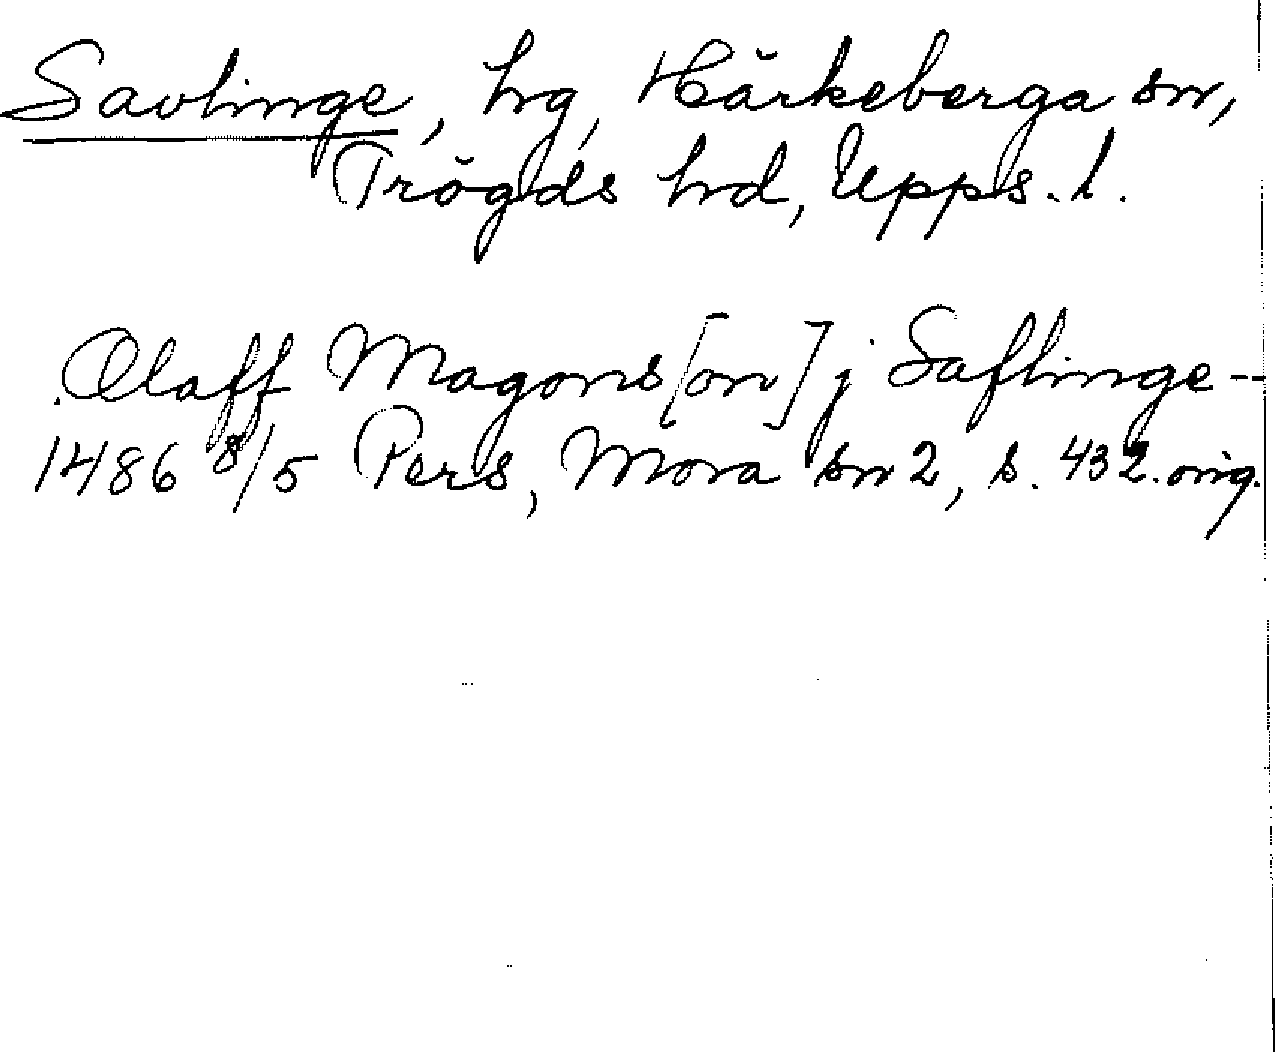 Savlinge, hg, Härkeberga sn,
Trögds hd, Upps. l.
Olaff Magons[on] j Saflinge --
1486 8/5 Pers, Mora sn 2, s. 432. orig.